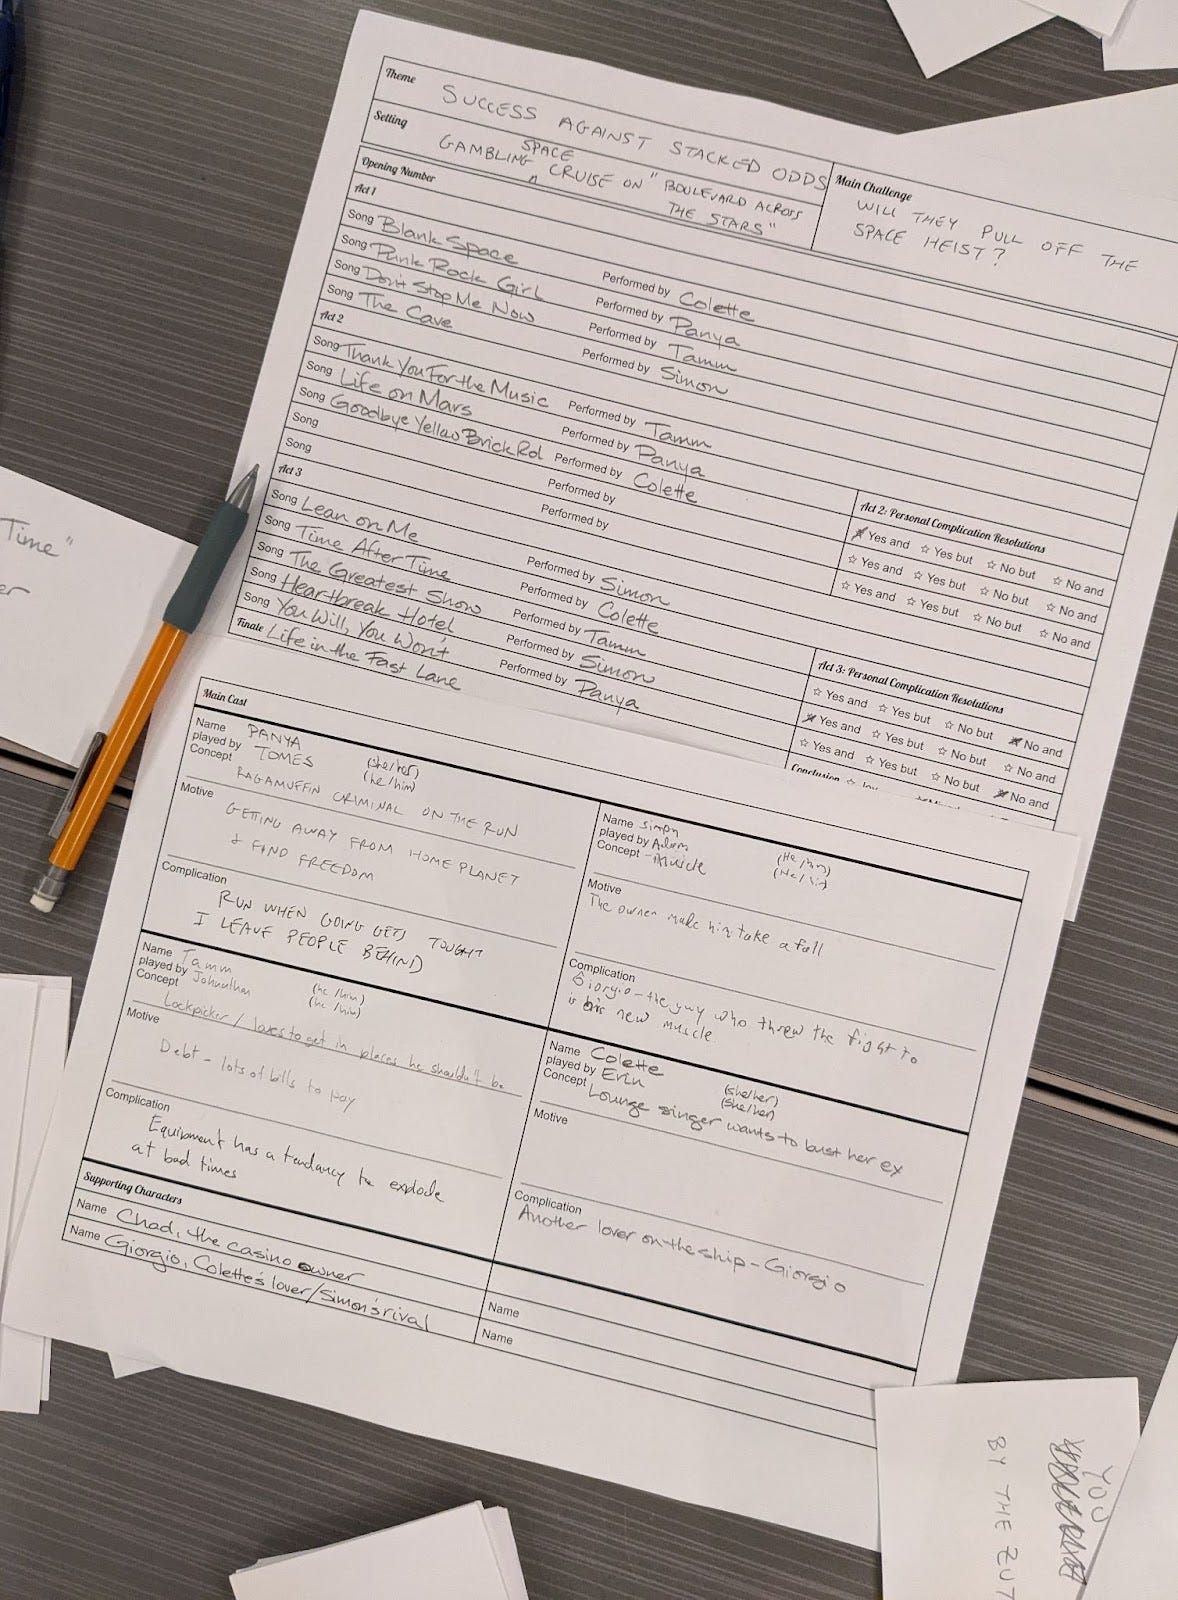 Theme SUCCESS AGAINST STACKED ODDS
Setting GAMBLING SPACE CRUISE ON "BOULEVARD ACROSS
THE STARS"
Main Challenge
WILL THEY PULL OFF THE
SPACE HEIST?
Opening Number
Act 1
Song Blank Space Performed by Colette
Song Punk Rock Girl Performed by Panya
Song Don't Stop Me Now Performed by Tamm
Song The Cave Performed by Simon
Act 2
Song Thank You For the Music Performed by Tamm
Song Life on Mars Performed by Panya
Song Goodbye Yellow Brick Rd Performed by Colette
Song Performed by
Song Performed by
Act 2: Personal Complication Resolutions
☆ Yes and ☆ Yes but ☆ No but ☆ No and
☆ Yes and ☆ Yes but ☆ No but ☆ No and
☆ Yes and ☆ Yes but ☆ No but ☆ No and
Act 3
Song Lean on Me Performed by Simon
Song Time After Time Performed by Colette
Song The Greatest Show Performed by Tamm
Song Heartbreak Hotel Performed by Simon
Song You Will, You Won't Performed by Panya
Finale Life in the Fast Lane
Act 3: Personal Complication Resolutions
☆ Yes and ☆ Yes but ☆ No but ☆ No and
☆ Yes and ☆ Yes but ☆ No but ☆ No and
☆ Yes and ☆ Yes but ☆ No but ☆ No and
Conclusion
Main Cast
Name PANYA (she/her)
played by TOMES (he/him)
Concept RAGAMUFFIN CRIMINAL ON THE RUN
Motive GETTING AWAY FROM HOME PLANET
& FIND FREEDOM
Complication
RUN WHEN GOING GETS TOUGHT
I LEAVE PEOPLE BEHIND
Name Simon (He/him)
played by Adam (He/him)
Concept - Muscle
Motive
The owner make him take a fall
Complication
Giorgio - the guy who threw the fight to
is his new muscle
Name Tamm (he/him)
played by Johnathan (he/him)
Concept Lockpicker / loves to get in places he shouldn't be
Motive
Debt - lots of bills to pay
Complication
Equipment has a tendancy to explode
at bad times
Name Colette (she/her)
played by Erin (she/her)
Concept Lounge singer wants to bust her ex
Motive
Complication
Another lover on the ship - Giorgio
Supporting Characters
Name Chad, the casino owner
Name Giorgio, Colette's lover/Simon's rival
Name
Name
Time"
er
YOU
BY THE ZUT